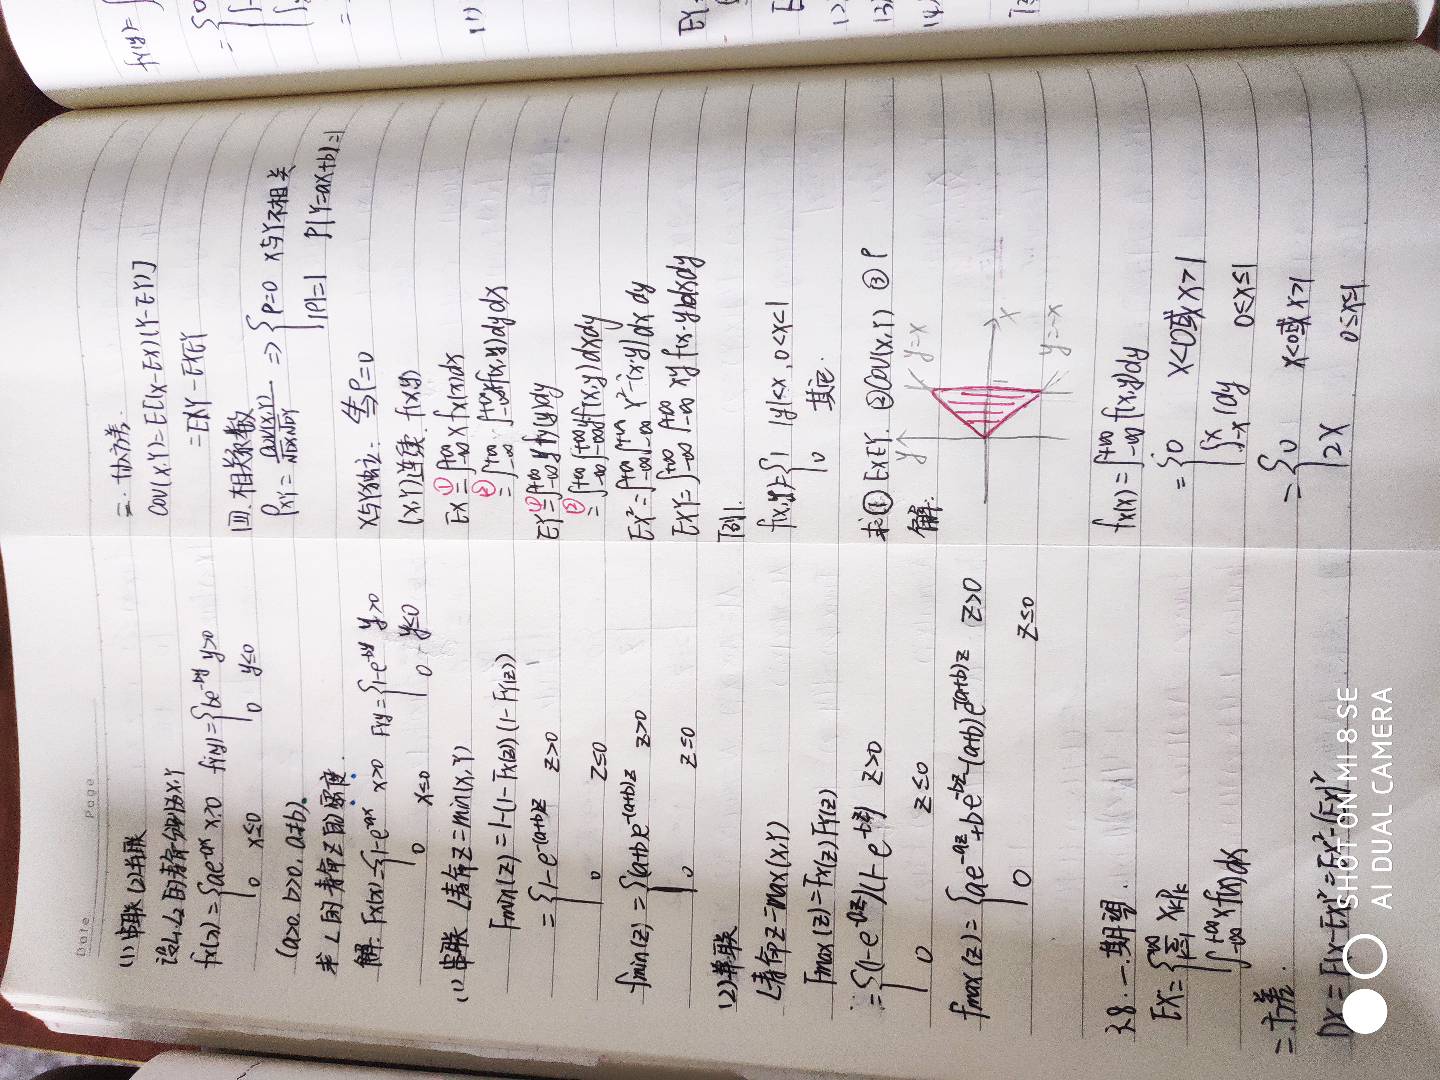 Date Page
(1)串联 (2)并联
设L₁,L₂的寿命分别为X,Y
fx(x)={ae^-ax x>0 fY(y)={be^-by y>0
0 x≤0 0 y≤0
(a>0, b>0, a≠b).
求L的寿命Z的密度.
解: Fx(x)={1-e^-ax x>0 FYy={1-e^-by y>0
0 x≤0 0 y≤0
(1) 串联 L寿命Z=min(X,Y)
Fmin(z)=1-(1-Fx(z))(1-FY(z))
={1-e^-(a+b)z z>0
0 z≤0
fmin(z)={(a+b)e^-(a+b)z z>0
0 z≤0
(2)并联
L寿命Z=max(X,Y)
Fmax(z)=Fx(z)FY(z)
={(1-e^-az)(1-e^-bz) z>0
0 z≤0
fmax(z)={ae^-az+be^-bz-(a+b)e^-(a+b)z z>0
0 z≤0
3.8. 一.期望.
EX={∞Σk=1 xkPk
∫-∞^+∞ xf(x)dx
二.方差.
DX=E(X-EX)²=EX²-(EX)²
三.协方差.
COV(X,Y)=E[(X-EX)(Y-EY)]
=EXY-EXEY
四.相关系数
ρXY=COV(X,Y)/√DX√DY ⇒{ρ=0 X与Y不相关
|ρ|=1 P{Y=ax+b}=1
X与Y独立: ⇒ρ=0
(X,Y)连续. f(x,y)
EX①=∫-∞^+∞ x fx(x)dx
②=∫-∞^+∞ ∫-∞^+∞ xf(x,y)dydx
EY①=∫-∞^+∞ y fy(y)dy
②=∫-∞^+∞ ∫-∞^+∞ yf(x,y)dxdy
EX²=∫-∞^+∞ ∫-∞^+∞ x² f(x,y)dxdy
EXY=∫-∞^+∞ ∫-∞^+∞ xy f(x,y)dxdy
例1.
f(x,y)={1 |y|<x, 0<x<1
0 其它.
求① EXEY. ②COV(X,Y) ③ρ
解:
y y=x
1
x
y=-x
fx(x)=∫-∞^+∞ f(x,y)dy
={0 x<0或x>1
∫-x^x 1dy 0≤x≤1
={0 x<0或x>1
2x 0≤x≤1
fY(y)=∫
={0
EY=
SHOT ON MI 8 SE
AI DUAL CAMERA